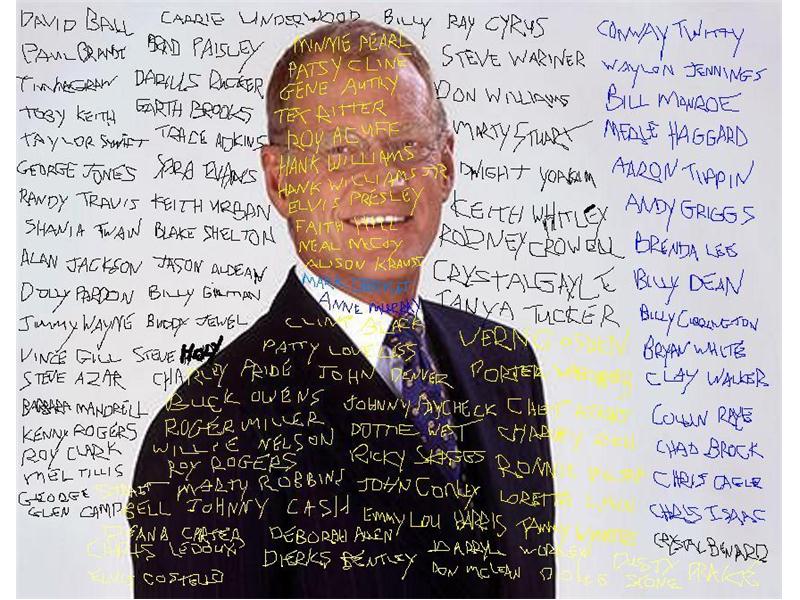 DAVID BALL CARRIE UNDERWOOD BILLY RAY CYRUS CONWAY TWITTY
PAUL BRANDT BRAD PAISLEY MINNIE PEARL STEVE WARINER WAYLON JENNINGS
TIM McGRAW DARIUS RUCKER PATSY CLINE DON WILLIAMS BILL MONROE
TOBY KEITH GARTH BROOKS GENE AUTRY MARTY STUART MERLE HAGGARD
TAYLOR SWIFT TRACE ADKINS TEX RITTER DWIGHT YOAKAM AARON TIPPIN
GEORGE JONES SARA EVANS ROY ACUFF KEITH WHITLEY ANDY GRIGGS
RANDY TRAVIS KEITH URBAN HANK WILLIAMS RODNEY CROWELL BRENDA LEE
SHANIA TWAIN BLAKE SHELTON HANK WILLIAMS JR CRYSTAL GAYLE BILLY DEAN
ALAN JACKSON JASON ALDEAN ELVIS PRESLEY TANYA TUCKER BILLY CURRINGTON
DOLLY PARDON BILLY GILMAN FAITH HILL BRYAN WHITE
JIMMY WAYNE BUDDY JEWEL NEAL McCOY CLAY WALKER
VINCE GILL STEVE HOLY ALISON KRAUSS COLLIN RAYE
STEVE AZAR CHARLEY PRIDE MARK CHESNUT CHAD BROCK
BARBARA MANDRELL BUCK OWENS ANNE MURRAY CHRIS CAGLE
KENNY ROGERS ROGER MILLER CLINT BLACK CHRIS ISAAC
ROY CLARK WILLIE NELSON PATTY LOVELESS VERN GOSDEN CRYSTAL BENARD
MEL TILLIS ROY ROGERS JOHN DENVER PORTER
GEORGE STRAIT MARTY ROBBINS JOHNNY PAYCHECK CHET
GLEN CAMPBELL JOHNNY CASH DOTTIE WEST CHARLEY RICH
DEANA CARTER DEBORAH ALLEN RICKY SKAGGS RONNIE MILSAP
CHRIS LEDOUX DIERKS BENTLEY JOHN CONLEY LORETTA LYNN
ELVIS COSTELLO EMMY LOU HARRIS TAMMY WYNETTE
DARRYL WORLEY
DON McLEAN DUSTY DRAKE
STONE